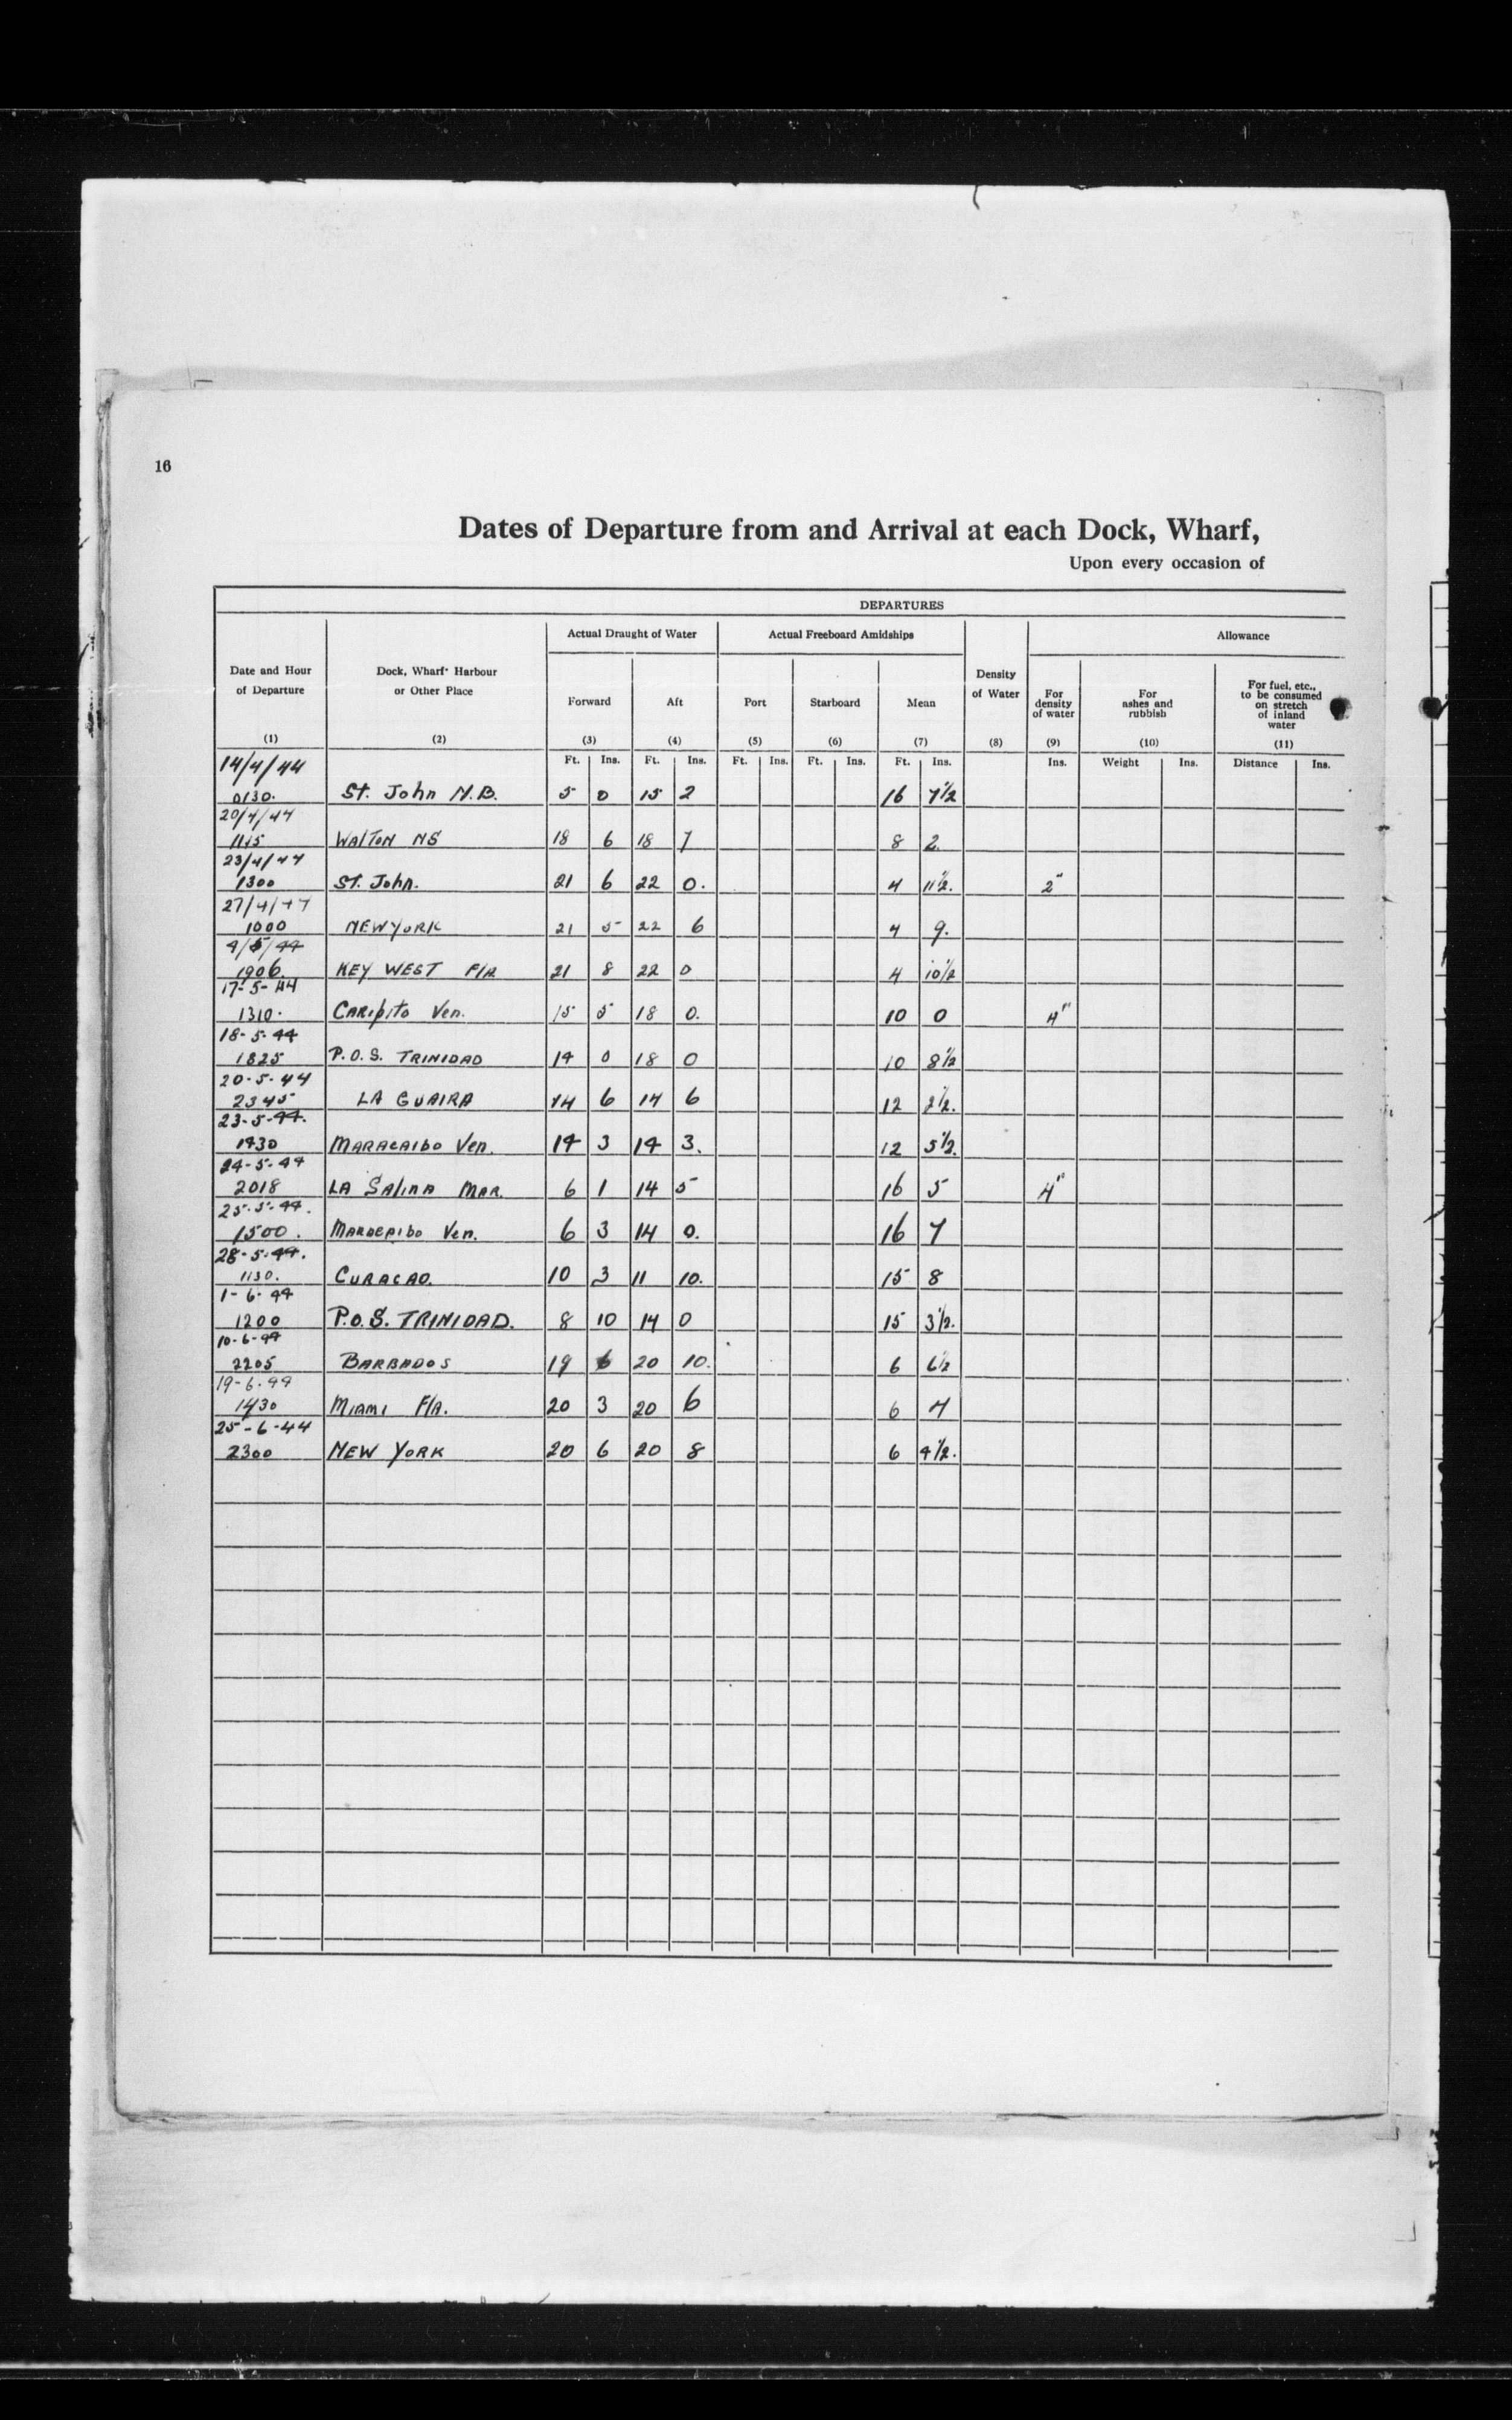 16
Dates of Departure from and Arrival at each Dock, Wharf,
Upon every occasion of
DEPARTURES
Actual Draught of Water Actual Freeboard Amidships Allowance
Date and Hour of Departure Dock, Wharf, Harbour or Other Place Forward Aft Port Starboard Mean Density of Water For density of water For ashes and rubbish For fuel, etc., to be consumed on stretch of inland water
(1) (2) (3) (4) (5) (6) (7) (8) (9) (10) (11)
Ft. Ins. Ft. Ins. Ft. Ins. Ft. Ins. Ft. Ins. Ins. Weight Ins. Distance Ins.
14/4/44
0130. St. John N.B. 5 0 15 2 16 7½
20/4/44
1115 WALTON NS 18 6 18 7 8 2
23/4/44
1300 St. John. 21 6 22 0. 4 11½. 2"
27/4/44
1000 NEW YORK 21 5 22 6 4 9.
9/5/44
1906. KEY WEST Fla 21 8 22 0 4 10½
17-5-44
1310. CARIpito Ven. 15 5 18 0. 10 0 4"
18-5-44
1825 P.O.S. TRINIDAD 14 0 18 0 10 8½
20-5-44
2345 LA GUAIRA 14 6 14 6 12 2½.
23-5-44.
1430 MARACAIBO Ven. 14 3 14 3. 12 5½.
24-5-44
2018 LA SAlinA MAR. 6 1 14 5 16 5 4"
25-5-44.
1500. MARACAIBO Ven. 6 3 14 0. 16 7
28-5-44.
1130. CURACAO. 10 3 11 10. 15 8
1-6-44
1200 P.O.S. TRINIDAD. 8 10 14 0 15 3½.
10-6-44
2205 BARBADOS 19 6 20 10. 6 6½
19-6-44
1430 MIAMI FlA. 20 3 20 6 6 7
25-6-44
2300 NEW YORK 20 6 20 8 6 4½.